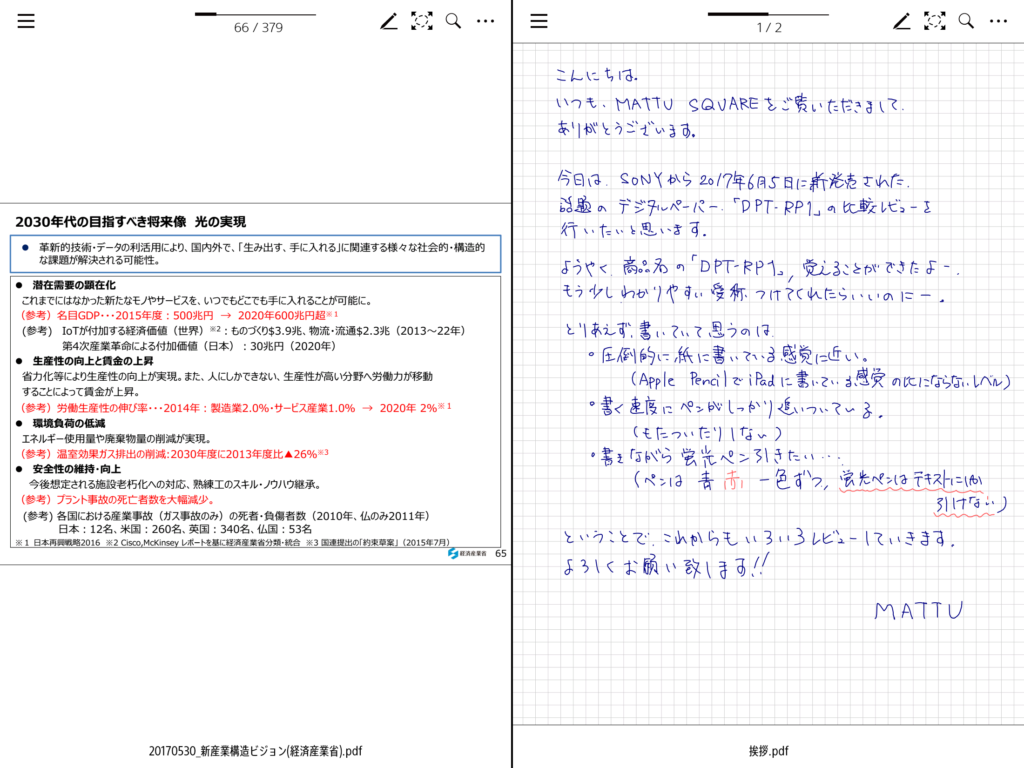 66 / 379
2030年代の目指すべき将来像 光の実現
● 革新的技術・データの利活用により、国内外で、「生み出す、手に入れる」に関連する様々な社会的・構造的
な課題が解決される可能性。
● 潜在需要の顕在化
これまでにはなかった新たなモノやサービスを、いつでもどこでも手に入れることが可能に。
（参考）名目GDP・・・2015年度：500兆円 → 2020年600兆円超※1
(参考) IoTが付加する経済価値（世界）※2：ものづくり$3.9兆、物流・流通$2.3兆（2013～22年）
第4次産業革命による付加価値（日本）：30兆円（2020年）
● 生産性の向上と賃金の上昇
省力化等により生産性の向上が実現。また、人にしかできない、生産性が高い分野へ労働力が移動
することによって賃金が上昇。
（参考）労働生産性の伸び率・・・2014年：製造業2.0%・サービス産業1.0% → 2020年 2%※1
● 環境負荷の低減
エネルギー使用量や廃棄物量の削減が実現。
（参考）温室効果ガス排出の削減:2030年度に2013年度比▲26%※3
● 安全性の維持・向上
今後想定される施設老朽化への対応、熟練工のスキル・ノウハウ継承。
（参考）プラント事故の死亡者数を大幅減少。
(参考) 各国における産業事故（ガス事故のみ）の死者・負傷者数（2010年、仏のみ2011年）
日本：12名、米国：260名、英国：340名、仏国：53名
※1 日本再興戦略2016 ※2 Cisco,McKinsey レポートを基に経済産業省分類・統合 ※3 国連提出の「約束草案」（2015年7月）
経済産業省 65
20170530_新産業構造ビジョン(経済産業省).pdf
1 / 2
こんにちは。
いつも、MATTU SQUAREをご覧いただきまして、
ありがとうございます。
今日は、SONYから2017年6月5日に新発売された、
話題の デジタルペーパー、「DPT-RP1」の比較レビューを
行いたいと思います。
ようやく、商品名の「DPT-RP1」、覚えることができたよー。
もう少しわかりやすい愛称 つけてくれたらいいのにー。
とりあえず、書いていて思うのは、
・圧倒的に紙に書いている感覚に近い。
（Apple PencilでiPadに書いている感覚の比にならないレベル）
・書く速度にペンがしっかり追いついている。
（もたついたりしない）
・書きながら蛍光ペン引きたい・・・
（ペンは 青 赤 一色ずつ、蛍光ペンはテキストにしか
引けない）
ということで、これからもいろいろレビューしていきます。
よろしくお願い致します!!
MATTU
挨拶.pdf